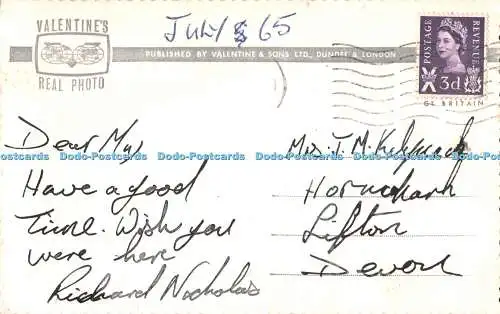 VALENTINE'S
REAL PHOTO
July 65
PUBLISHED BY VALENTINE & SONS LTD., DUNDEE & LONDON
POSTAGE
REVENUE
3d
GT. BRITAIN
Dear
Have a good
Time. Wish you
were here
Richard Nicholas
J. M.
Lifton
Devon
Dodo-Postcards Dodo-Postcards Dodo-Postcards Dodo-Postcards Dodo-Postcards